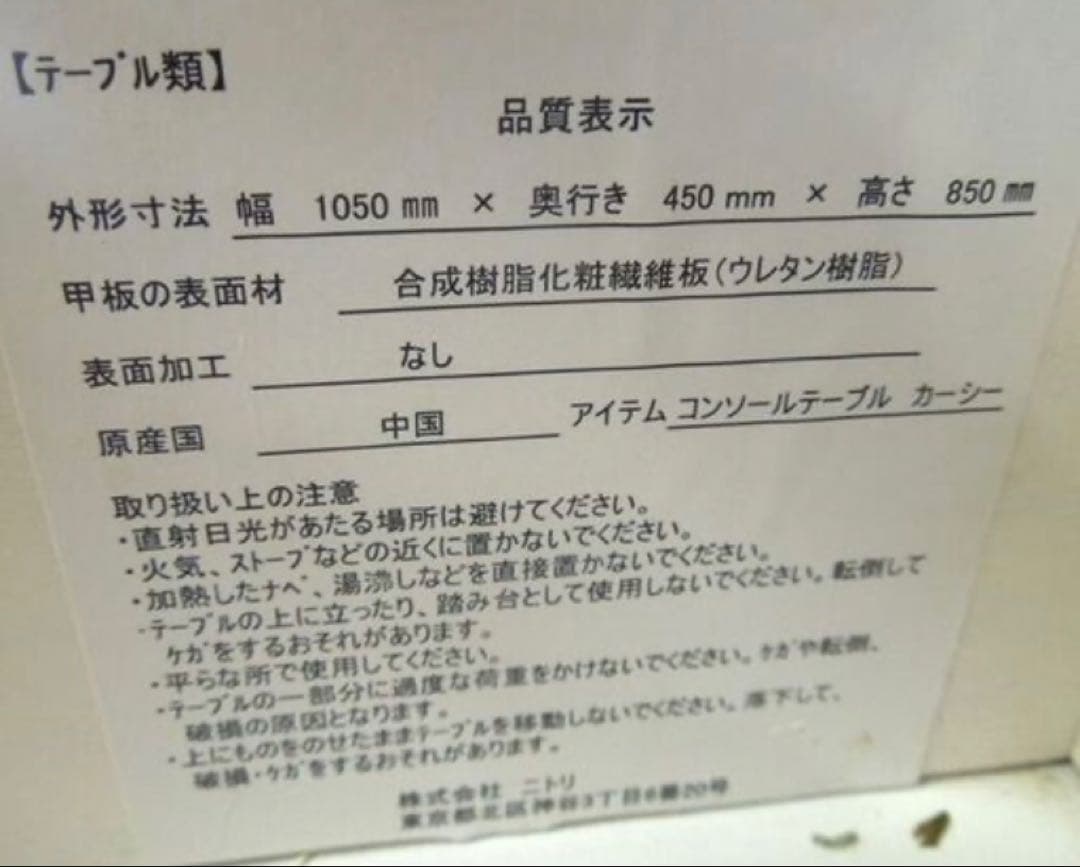 【テーブル類】
品質表示
外形寸法 幅 1050 mm × 奥行き 450 mm × 高さ 850 mm
甲板の表面材 合成樹脂化粧繊維板(ウレタン樹脂)
表面加工 なし
原産国 中国 アイテム コンソールテーブル カーシー
取り扱い上の注意
・直射日光があたる場所は避けてください。
・火気、ストーブなどの近くに置かないでください。
・加熱したナベ、湯沸しなどを直接置かないでください。
・テーブルの上に立ったり、踏み台として使用しないでください。転倒して
ケガをするおそれがあります。
・平らな所で使用してください。
・テーブルの一部分に過度な荷重をかけないでください。ケガや転倒、
破損の原因となります。
・上にものをのせたままテーブルを移動しないでください。落下して、
破損・ケガをするおそれがあります。
株式会社 ニトリ
東京都北区神谷3丁目6番20号